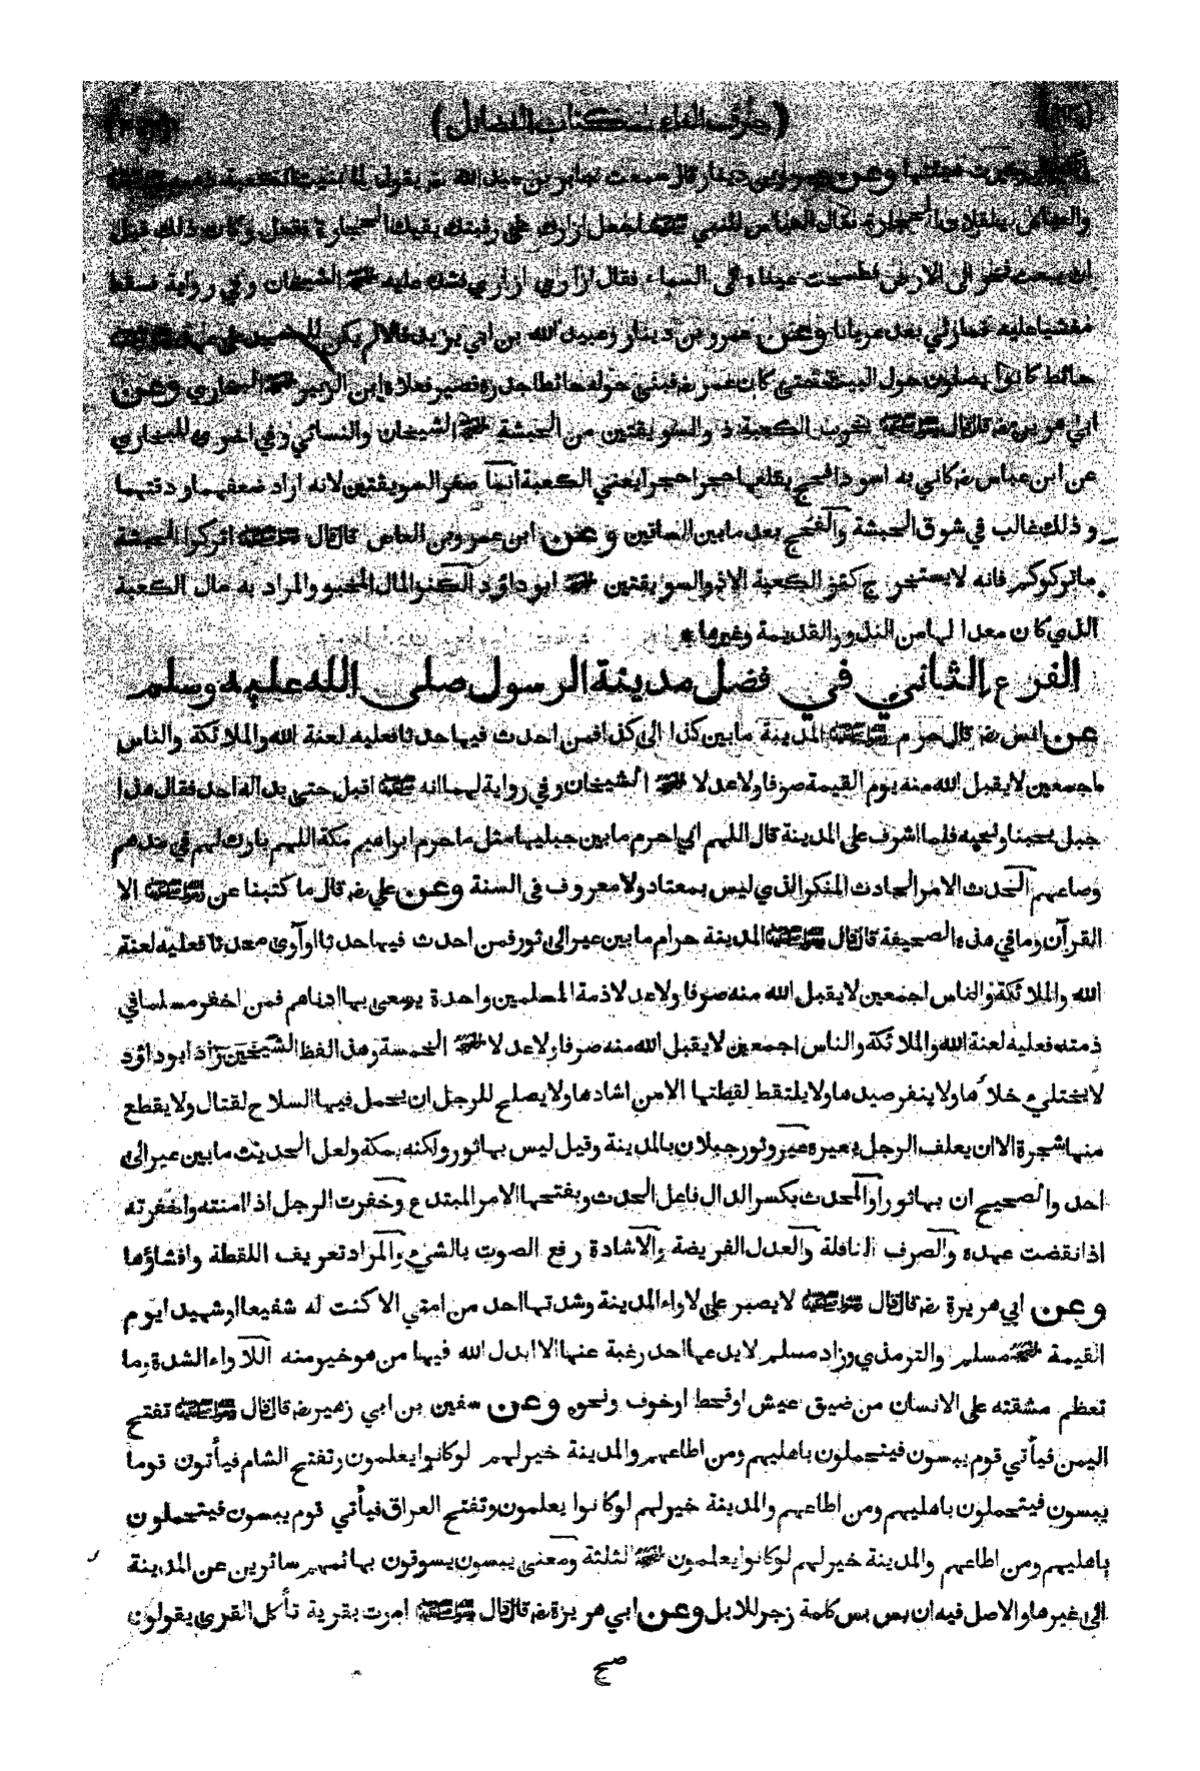 (حرف الفاء - كتاب الفضائل)
فبنيتها وعن عمرو بن دينار قال سمعت جابر بن عبد الله رضي يقول لما بنيت الكعبة
والعباس ينقلان الحجارة فقال العباس للنبي ﷺ اجعل ازارك على رقبتك يقيك الحجارة ففعل وكان ذلك قبل
ان يبعث فخر الى الارض فطمحت عيناه الى السماء فقال ازاري ازاري فشد عليه اخرجه الشيخان وفي رواية فسقط
مغشيا عليه فما رئي بعد عريانا وعن عمرو بن دينار وعبيد الله بن ابي يزيد قالا لم يكن للمسجد على عهد
حائط كانوا يصلون حول البيت حتى كان عمر رضه فبنى حوله حائطا جدره قصير فعلاه ابن الزبير اخرجه البخاري وعن
ابي هريرة رضه قال قال رسول الله ﷺ يخرب الكعبة ذو السويقتين من الحبشة اخرجه الشيخان والنسائي وفي اخرى للبخاري
عن ابن عباس رضه كاني به اسود افحج يقلعها حجرا حجرا يعني الكعبة انما صغر السويقتين لانه اراد ضعفهما ودقتهما
وذلك غالب في سوق الحبشة والفحج بعد ما بين الساقين وعن ابن عمرو بن العاص قال قال رسول الله ﷺ اتركوا الحبشة
ما تركوكم فانه لا يستخرج كنز الكعبة الا ذو السويقتين اخرجه ابو داؤد الكنز المال المخبو والمراد به مال الكعبة
الذي كان معدا لها من النذور القديمة وغيرها *
الفرع الثاني في فضل مدينة الرسول صلى الله عليه وسلم
عن انس رضه قال حرم رسول الله ﷺ المدينة ما بين كذا الى كذا فمن احدث فيها حدثا فعليه لعنة الله والملائكة والناس
اجمعين لا يقبل الله منه يوم القيمة صرفا ولا عدلا اخرجه الشيخان وفي رواية لهما انه ﷺ اقبل حتى بدا له احد فقال هذا
جبل يحبنا ونحبه فلما اشرف على المدينة قال اللهم اني احرم ما بين جبليها مثل ما حرم ابراهيم مكة اللهم بارك لهم في مدهم
وصاعهم الحدث الامر الحادث المنكر الذي ليس بمعتاد ولا معروف فى السنة وعن علي رضه قال ما كتبنا عن رسول الله ﷺ الا
القرآن وما في هذه الصحيفة قال قال رسول الله ﷺ المدينة حرام ما بين عير الى ثور فمن احدث فيها حدثا او آوى محدثا فعليه لعنة
الله والملائكة والناس اجمعين لا يقبل الله منه صرفا ولا عدلا ذمة المسلمين واحدة يسعى بها ادناهم فمن اخفر مسلما في
ذمته فعليه لعنة الله والملائكة والناس اجمعين لا يقبل الله منه صرفا ولا عدلا اخرجه الخمسة وهذا لفظ الشيخين زاد ابو داؤد
لا يختلى خلاؤها ولا ينفر صيدها ولا يلتقط لقطتها الا من اشادها ولا يصلح للرجل ان يحمل فيها السلاح لقتال ولا يقطع
منها شجرة الا ان يعلف الرجل بعيره عير وثور جبلان بالمدينة وقيل ليس بها ثور ولكنه بمكة ولعل الحديث ما بين عير الى
احد والصحيح ان بها ثورا والمحدث بكسر الدال فاعل الحدث وبفتحها الامر المبتدع وخفرت الرجل اذا امنته واخفرته
اذا نقضت عهده والصرف النافلة والعدل الفريضة والاشادة رفع الصوت بالشيء والمراد تعريف اللقطة وافشاؤها
وعن ابي هريرة رضه قال قال رسول الله ﷺ لا يصبر على لاواء المدينة وشدتها احد من امتي الا كنت له شفيعا او شهيدا يوم
القيمة اخرجه مسلم والترمذي وزاد مسلم لا يدعها احد رغبة عنها الا ابدل الله فيها من هو خير منه اللاواء الشدة وما
تعظم مشقته على الانسان من ضيق عيش او قحط او خوف ونحوه وعن سفين بن ابي زهير رضه قال قال رسول الله ﷺ تفتح
اليمن فيأتي قوم يبسون فيتحملون باهليهم ومن اطاعهم والمدينة خير لهم لو كانوا يعلمون وتفتح الشام فيأتون قوما
يبسون فيتحملون باهليهم ومن اطاعهم والمدينة خير لهم لو كانوا يعلمون وتفتح العراق فيأتي قوم يبسون فيتحملون
باهليهم ومن اطاعهم والمدينة خير لهم لو كانوا يعلمون اخرجه الثلثة ومعنى يبسون يسوقون بهائمهم سائرين عن المدينة
الى غيرها والاصل فيه ان بس بس كلمة زجر للابل وعن ابي هريرة رضه قال قال رسول الله ﷺ امرت بقرية تأكل القرى يقولون
صح